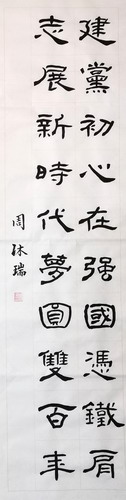 建黨初心在强國憑鐵肩
志展新時代夢圓雙百年
周林瑞